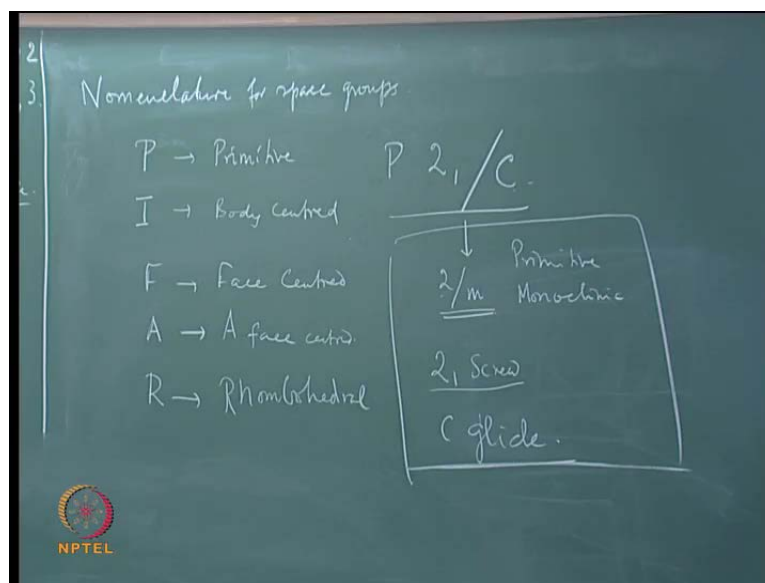 2
, 3.
e.
Nomenclature for space groups.
P → Primitive
I → Body centred
F → Face Centred
A → A face centred.
R → Rhombohedral
P 2₁/C.
↓
2/m Primitive
Monoclinic
2₁ Screw
C glide.
NPTEL